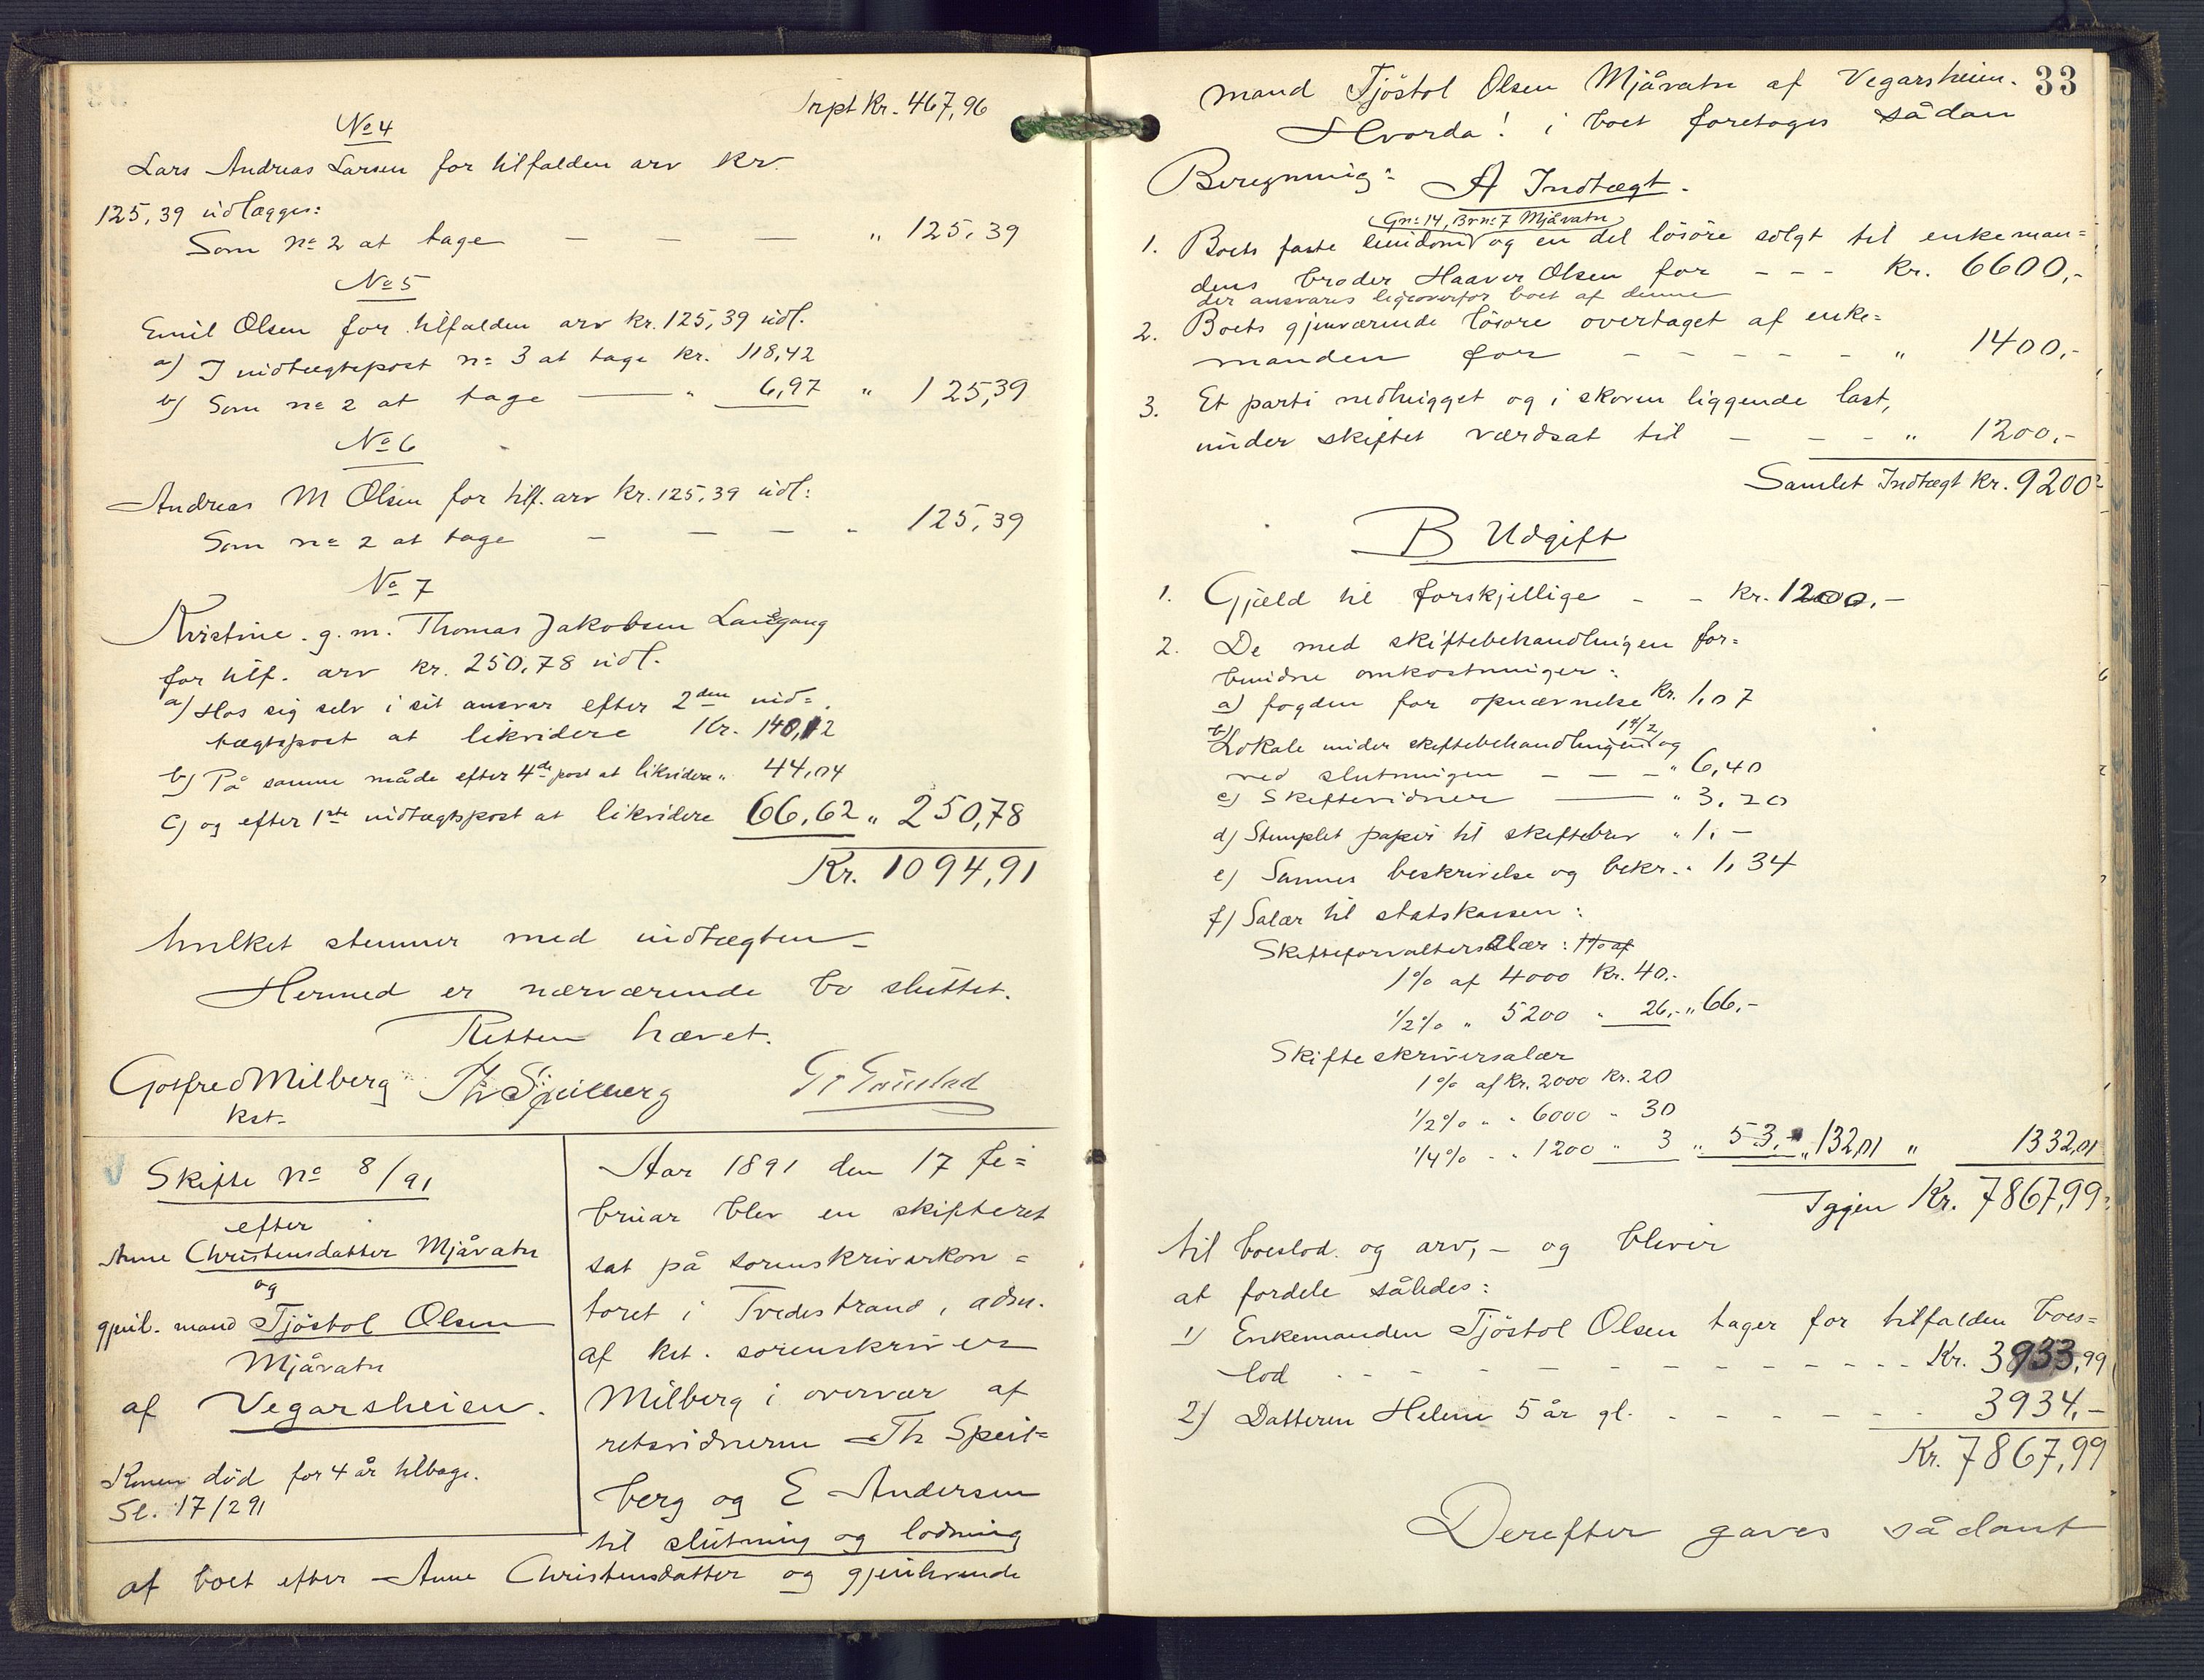 Trpt Kr. 467,96
No 4
Lars Andreas Larsen for tilfalden arv kr.
125,39 udlægges:
Som no 2 at tage — — — " 125,39
No 5
Emil Olsen for tilfalden arv kr. 125,39 udl.
a) I indtægtspost no 3 at tage kr. 118,42
b) Som no 2 at tage — " 6,97 " 125,39
No 6
Andreas M Olsen for tilf. arv kr. 125,39 udl:
Som no 2 at tage — — — " 125,39
No 7
Kristine g. m. Thomas Jakobsen Langgang
for tilf. arv kr. 250,78 udl.
a) Hos sig selv i sit ansvar efter 2den ind=
tægtspost at likvidere Kr. 140,12
b) På samme måde efter 4de post at likvidere " 44,04
c) og efter 1ste indtægtspost at likvidere 66,62 " 250,78
Kr. 1094,91
hvilket stemmer med indtægten —
Hermed er nærværende bo sluttet.
Retten hævet.
Gotfred Milberg Th Speilberg
kst.
Skifte No 8/91
efter
Anne Christensdatter Mjåvatn
og
gjenl. mand Tjöstol Olsen
Mjåvatn
af Vegarsheien.
Konen död for 4 år tilbage.
Sl. 17/2 91
Aar 1891 den 17 fe=
bruar blev en skifteret
sat på sorenskriverkon=
toret i Tvedestrand, adm.
af kst. sorenskriver
Milberg i overvær af
retsvidnerne Th Speil=
berg og E Andersen
til slutning og lodning
af boet efter Anne Christensdatter og gjenlevende
33
mand Tjöstol Olsen Mjåvatn af Vegarsheien.
Hvorda! i boet foretoges sådan
Beregning: A Indtægt.
Gno 14, Brno 7 Mjåvatn
1. Boets faste eiendom og en del lösöre solgt til enkeman=
dens broder Haaver Olsen for - - - kr. 6600,-
der ansvares ligeoverfor boet af denne
2. Boets gjenværende lösöre overtaget af enke=
manden for - - - - - " 1400,-
3. Et parti nedhugget og i skoven liggende last,
under skiftet værdsat til - - - " 1200,-
Samlet Indtægt kr. 9200,-
B Udgift
1. Gjæld til forskjellige - - kr. 1200,-
2. De med skiftebehandlingen for=
bundne omkostninger:
a) fogden for opnævnelse Kr. 1,07
b) Lokale under skiftebehandlingen 14/2 og
ved slutningen — — - " 6,40
c) Skiftevidner — " 3,20
d) Stemplet papir til skiftebrev " 1,-
e) Sammes beskrivelse og bekr. " 1,34
f) Salær til statskassen:
Skifteforvaltersalær: 1% af
1% af 4000 Kr. 40.-
1/2% " 5200 " 26,- " 66,-
Skifteskriversalær
1% af Kr. 2000 Kr. 20
1/2% " " 6000 " 30
1/4% " " 1200 " 3 " 53.- " 132,01 " 1332,01
Igjen Kr. 7867,99
til boeslod og arv, - og bliver
at fordele således:
1) Enkemanden Tjöstol Olsen tager for tilfalden boes=
lod - - - - - - - - - Kr. 3933,99
2) Datteren Helene 5 år gl. - - - - - - 3934,-
Kr. 7867,99
Derefter gaves sådant